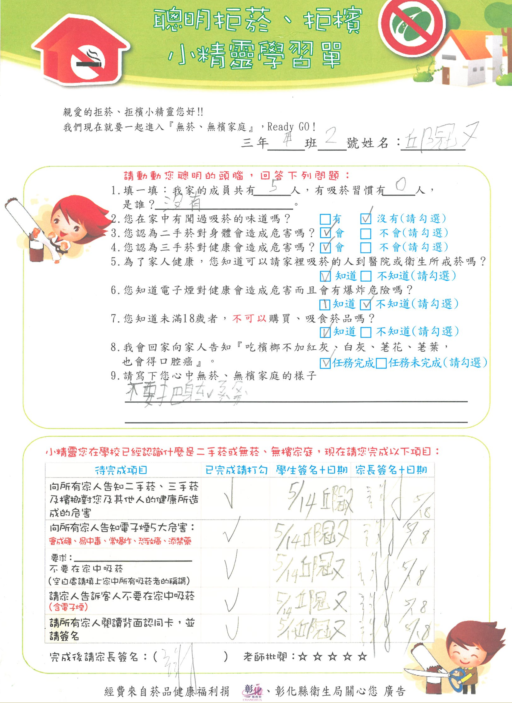 聰明拒菸、拒檳
小精靈學習單
親愛的拒菸、拒檳小精靈您好!!
我們現在就要一起進入『無菸、無檳家庭』，Ready GO!
三年 班 2 號姓名：邱冠又
請動動您聰明的頭腦，回答下列問題：
1.填一填：我家的成員共有 5 人，有吸菸習慣有 0 人，
是誰？沒有。
2.您在家中有聞過吸菸的味道嗎？ □有 ☑沒有(請勾選)
3.您認為二手菸對身體會造成危害嗎？ ☑會 □不會(請勾選)
4.您認為三手菸對健康會造成危害嗎？ ☑會 □不會(請勾選)
5.為了家人健康，您知道可以請家裡吸菸的人到醫院或衛生所戒菸嗎？
☑知道 □不知道(請勾選)
6.您知道電子煙對健康會造成危害而且會有爆炸危險嗎？
知道 ☑不知道(請勾選)
7.您知道未滿18歲者，不可以購買、吸食菸品嗎？
☑知道 □不知道(請勾選)
8.我會回家向家人告知『吃檳榔不加紅灰、白灰、荖花、荖葉，
也會得口腔癌』。 ☑任務完成 □任務未完成(請勾選)
9.請寫下您心中無菸、無檳家庭的樣子
不要
小精靈您在學校已經認識什麼是二手菸或無菸、無檳家庭，現在請您完成以下項目：
待完成項目 已完成請打勾 學生簽名+日期 家長簽名+日期
向所有家人告知二手菸、三手菸
及檳榔對您及其他人的健康所造
成的危害 ✓ 5/14 邱冠又
向所有家人告知電子煙5大危害：
會成癮、易中毒、常爆炸、 ✓ 5/14 邱冠又 5/18
要求：
不要在家中吸菸
(空白處請填上家中所有吸菸者的稱謂) ✓ 5/14 邱冠又 5/18
請家人告訴客人不要在家中吸菸
(含電子煙) ✓ 5/14 邱冠又 5/18
請所有家人閱讀背面認同卡，並
請簽名 ✓ 5/14 邱冠又 5/18
完成後請家長簽名：( ) 老師批閱：☆☆☆☆☆
經費來自菸品健康福利捐 彰化、彰化縣衛生局關心您 廣告